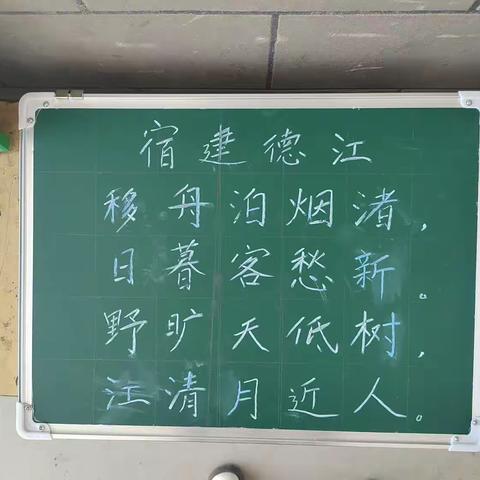 宿建德江
移舟泊烟渚，
日暮客愁新。
野旷天低树，
江清月近人。